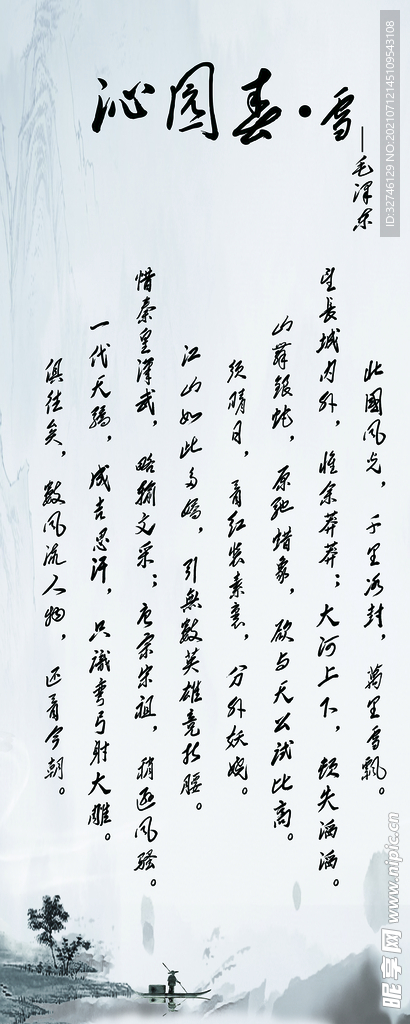 沁园春·雪
——毛泽东
北國风光，千里冰封，萬里雪飄。
望長城内外，惟余莽莽；大河上下，頓失滔滔。
山舞银蛇，原驰蜡象，欲与天公试比高。
须晴日，看红装素裹，分外妖娆。
江山如此多嬌，引無數英雄竞折腰。
惜秦皇漢武，略输文采；唐宗宋祖，稍逊风骚。
一代天骄，成吉思汗，只識弯弓射大雕。
俱往矣，數风流人物，还看今朝。
ID:32746129 NO:20210712145109543108
昵享网 www.nipic.cn